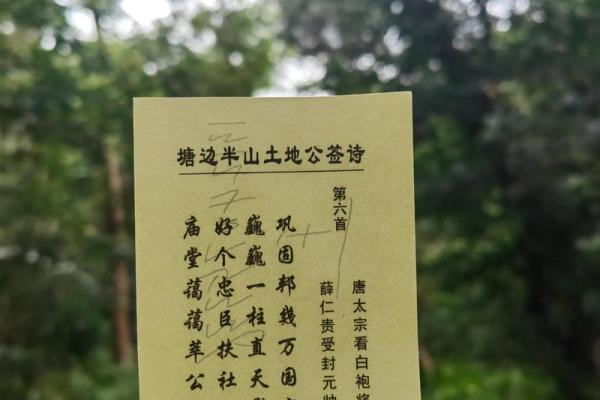 塘边半山土地公签诗
第六首
唐太宗看白袍将
薛仁贵受封元帅
巩固邦几万国
巍巍一柱直天
好个忠臣扶社
庙堂蔼蔼萃公